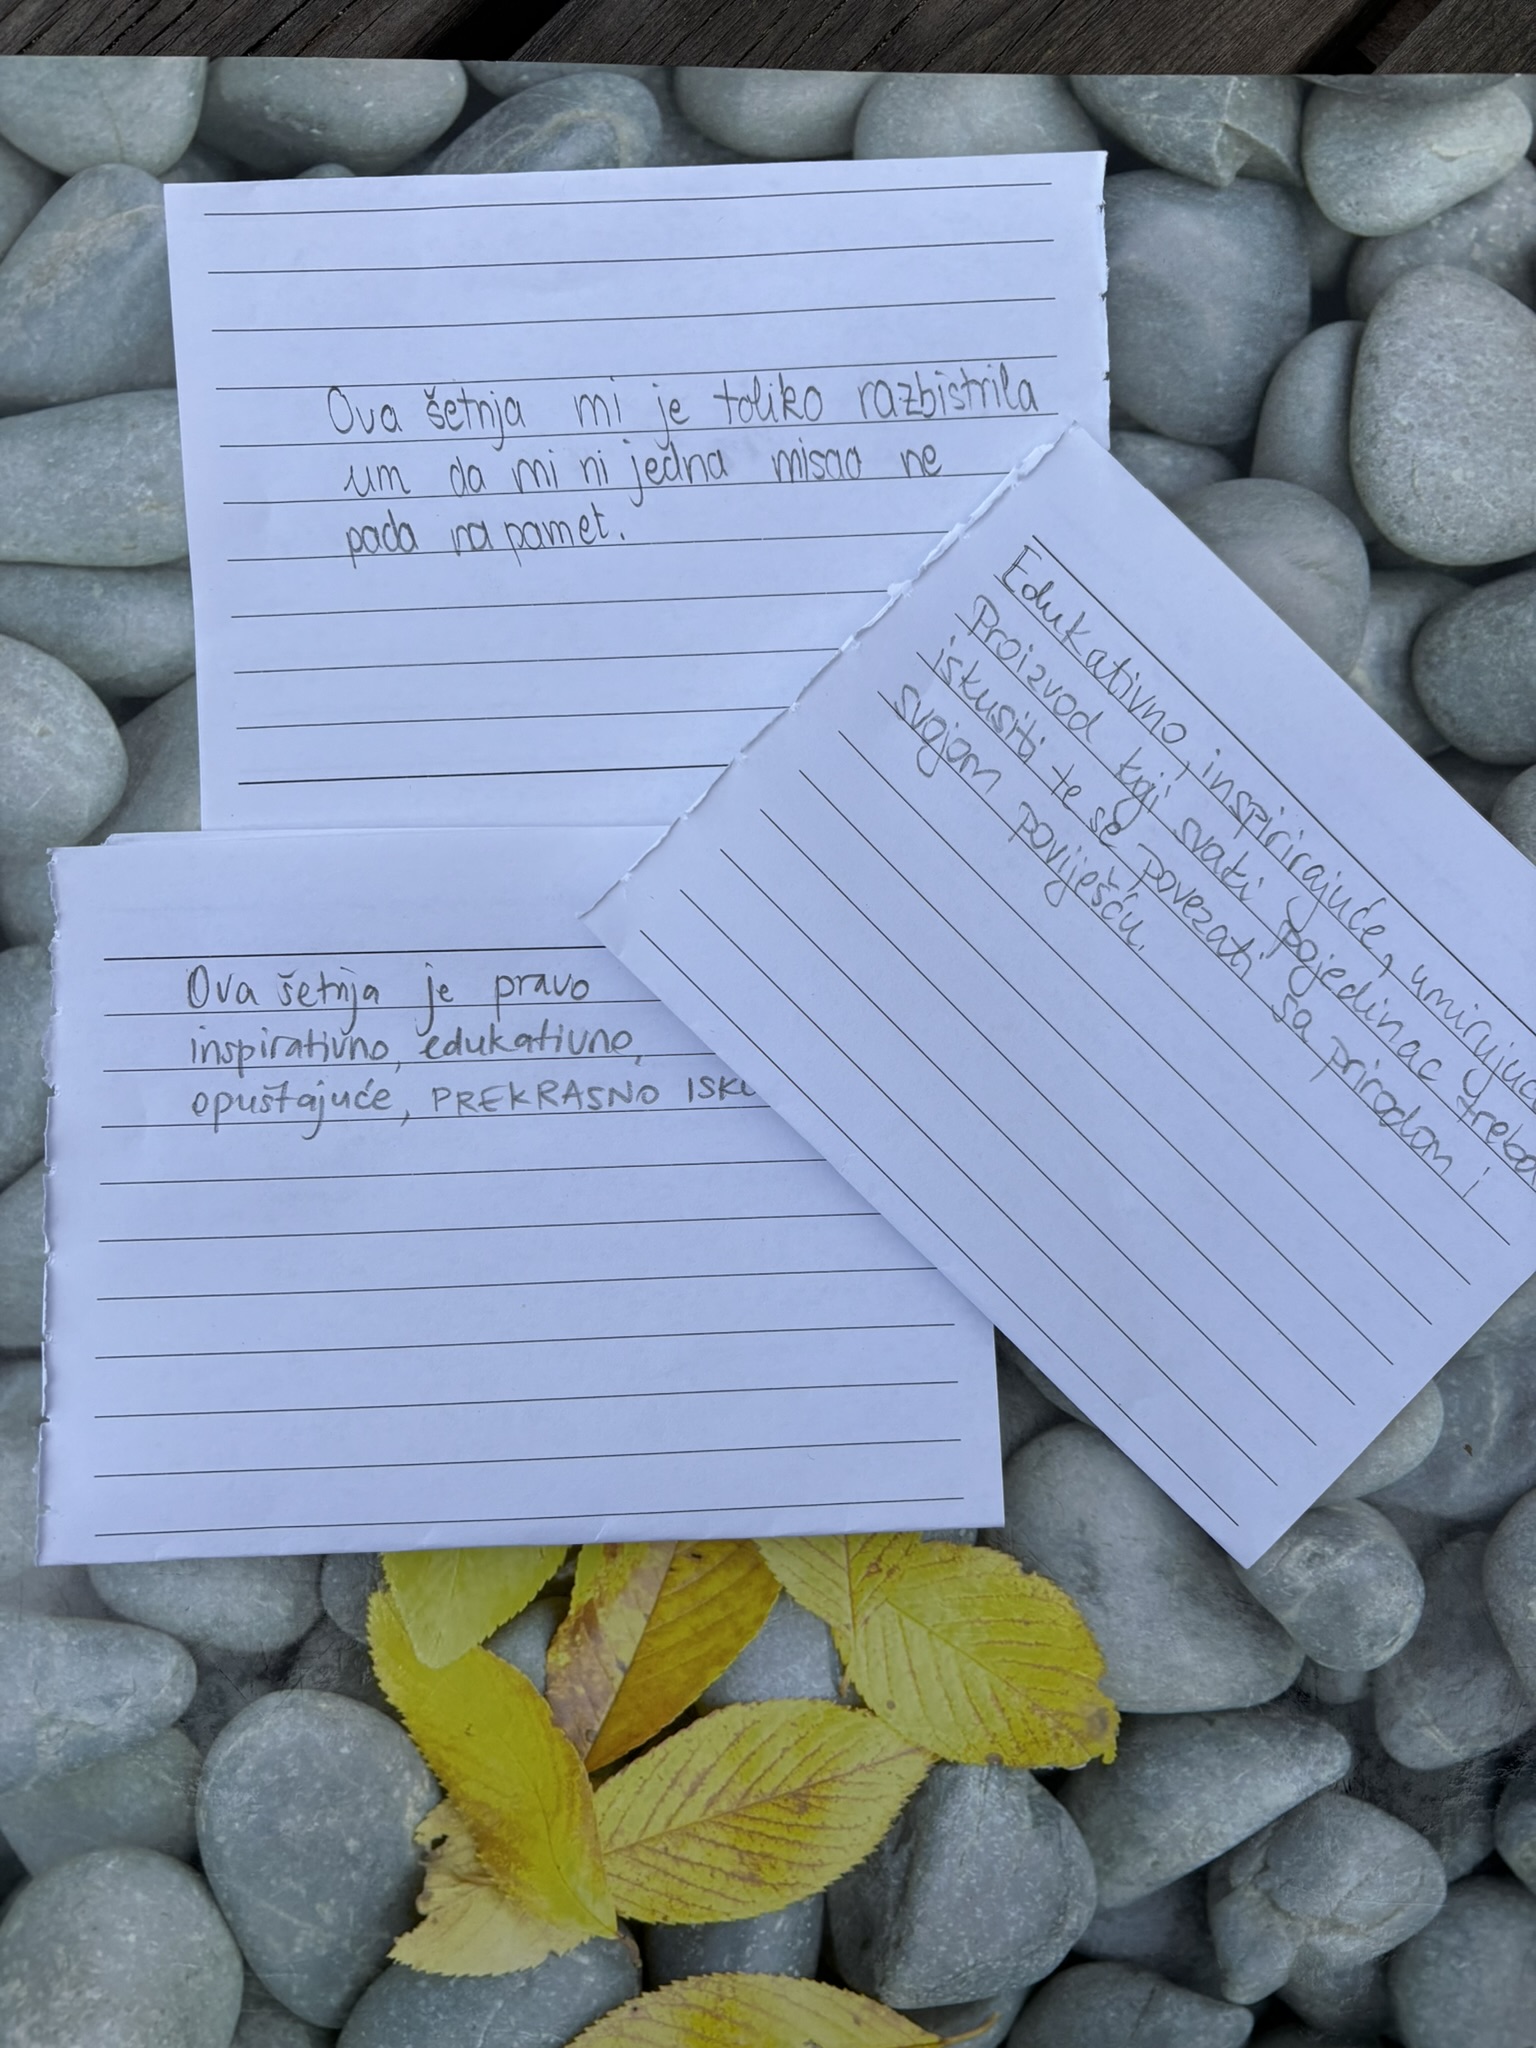 Ova šetnja mi je toliko razbistrila
um da mi ni jedna misao ne
pada na pamet.
Edukativno, inspirirajuće, umirujuće
Proizvod koji svaki pojedinac treba
iskusiti te se povezati sa prirodom i
svojom poviješću.
Ova šetnja je pravo
inspirativno, edukativno,
opuštajuće, PREKRASNO